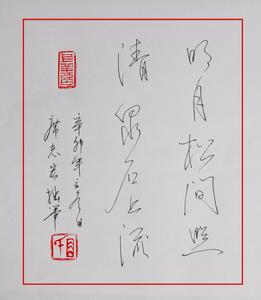 明月松间照
清泉石上流
辛卯年
席志岩